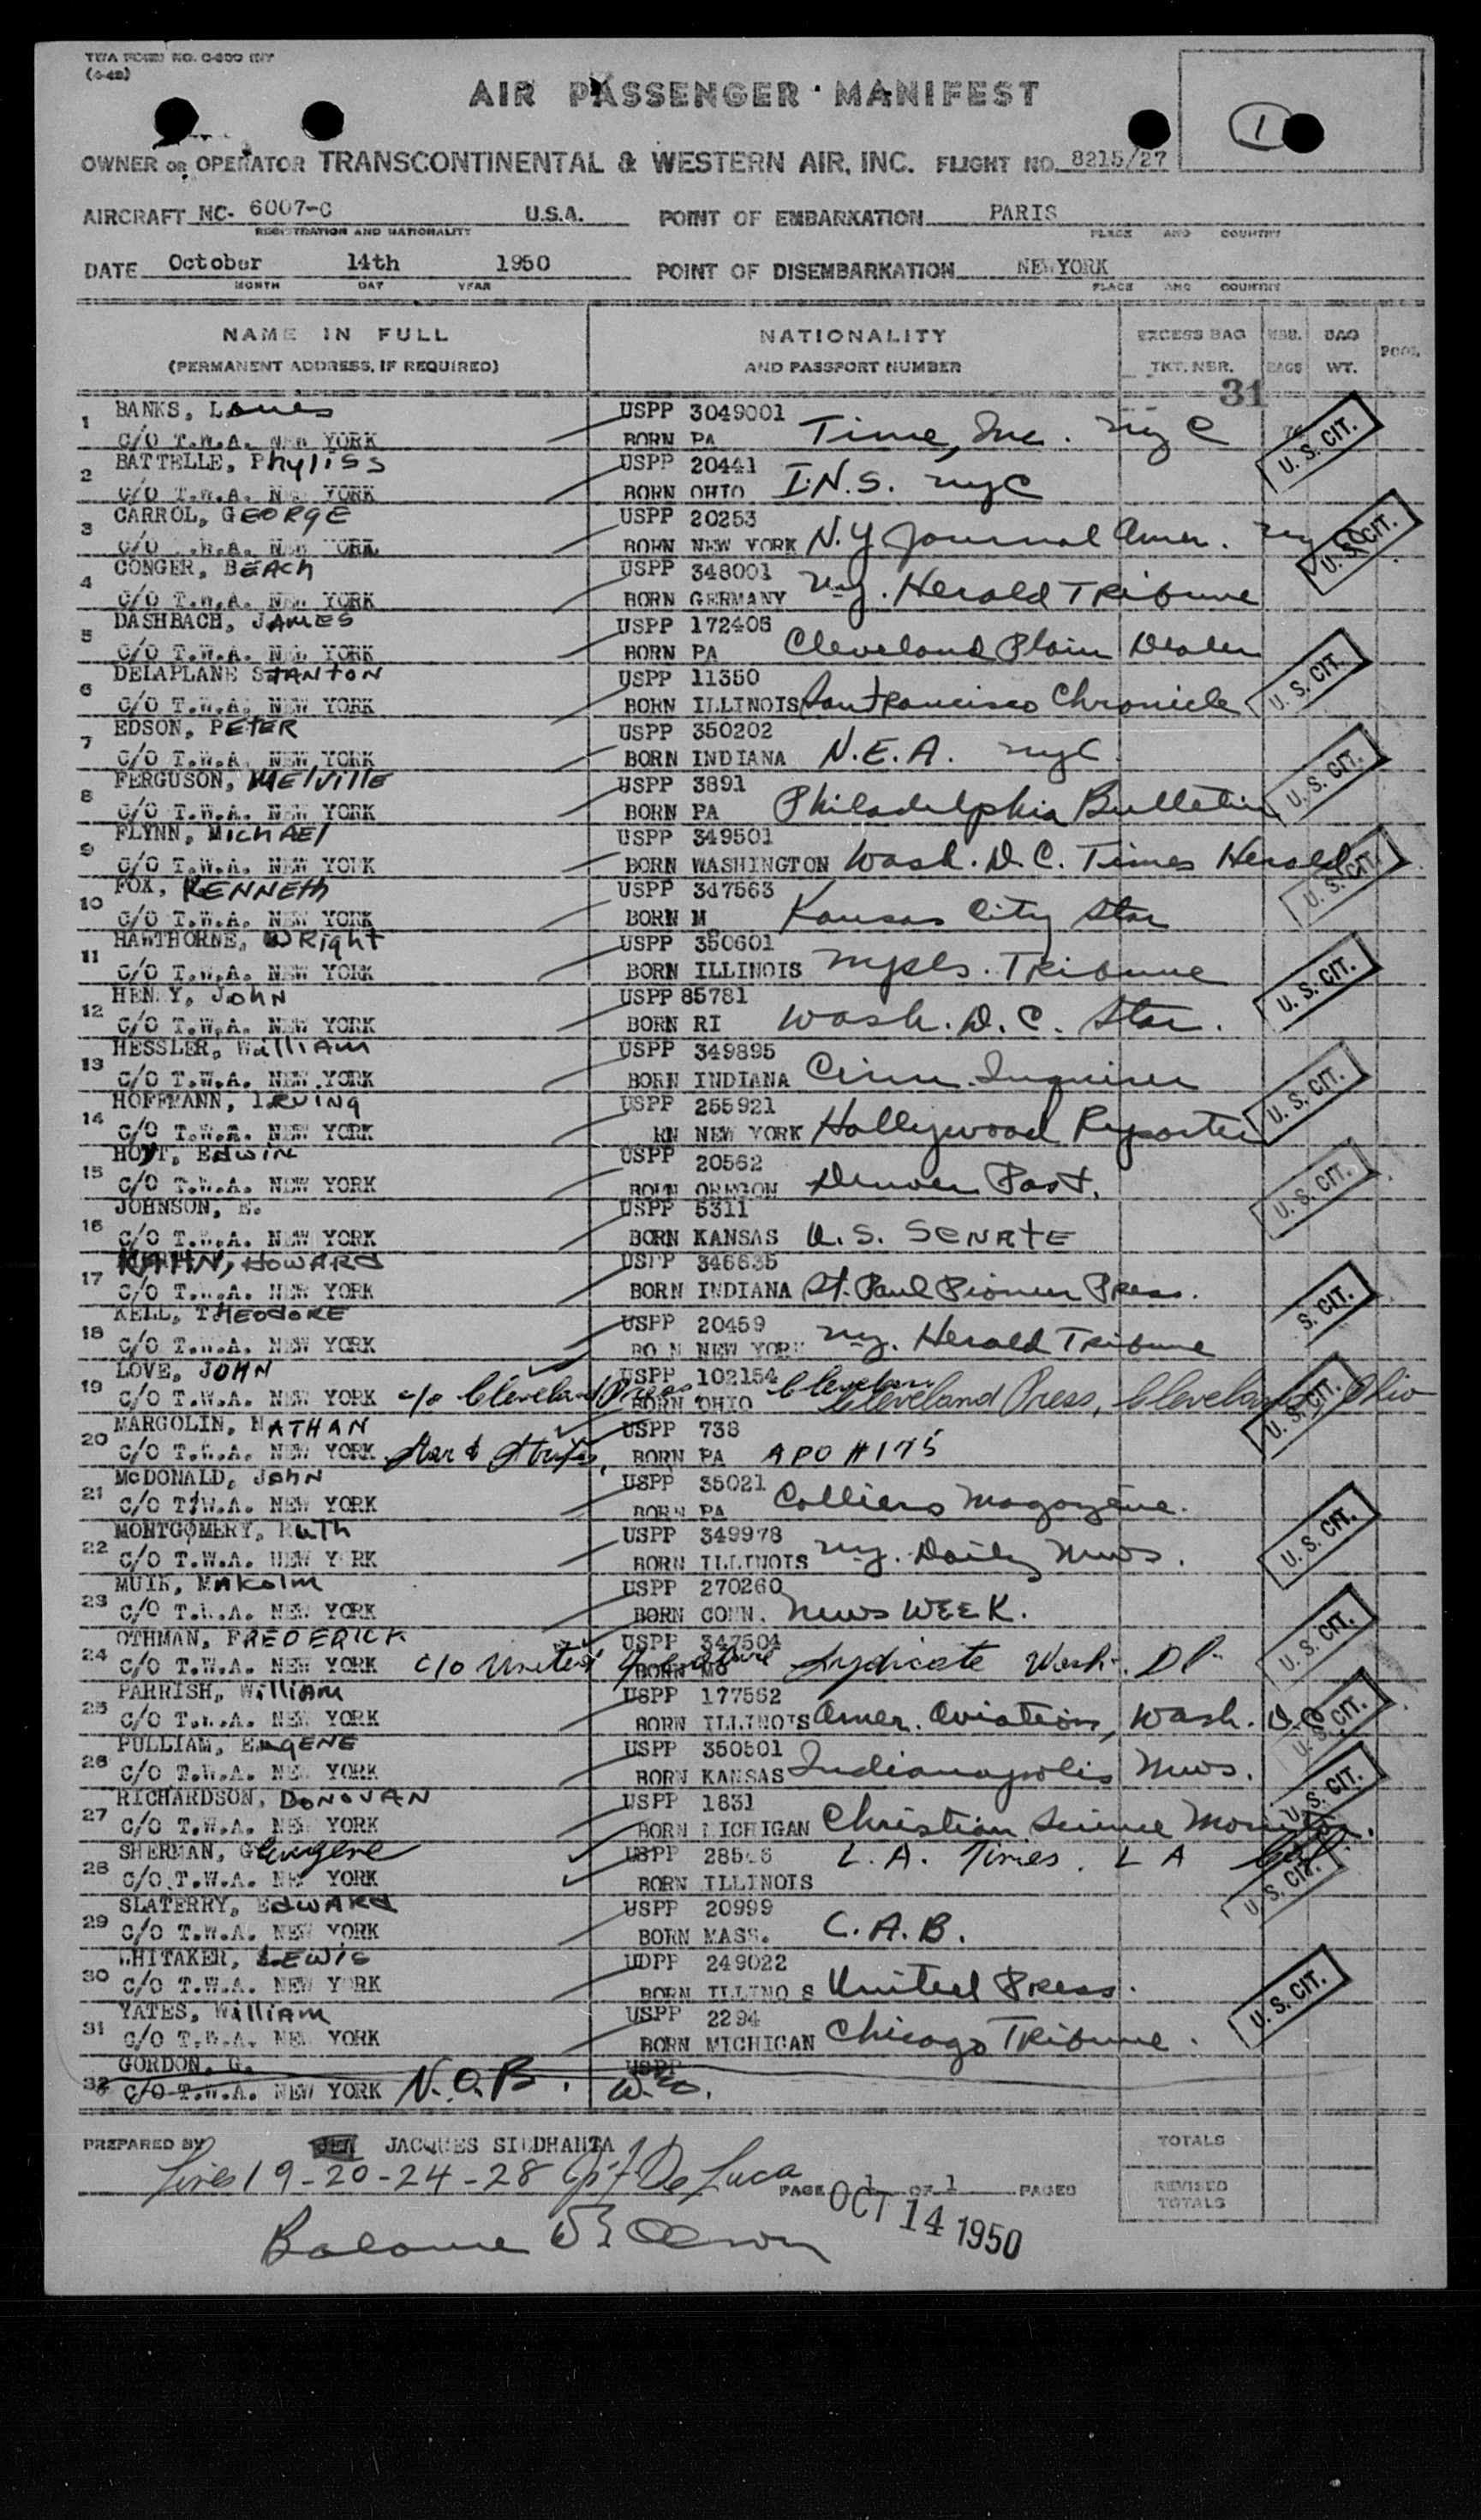 TWA FORM NO. C-800 INY
AIR PASSENGER MANIFEST
1
OWNER OR OPERATOR TRANSCONTINENTAL & WESTERN AIR, INC. FLIGHT NO. 8215/27
AIRCRAFT NC- 6007-C U.S.A. POINT OF EMBARKATION PARIS
REGISTRATION AND NATIONALITY PLACE AND COUNTRY
DATE October 14th 1950 POINT OF DISEMBARKATION NEW YORK
MONTH DAY YEAR PLACE AND COUNTRY
NAME IN FULL NATIONALITY EXCESS BAG BAG
(PERMANENT ADDRESS, IF REQUIRED) AND PASSPORT NUMBER TKT. NBR. BAGS WT.
31
1 BANKS, Louis USPP 3049001
C/O T.W.A. NEW YORK BORN PA Time, Inc. NYC U. S. CIT.
2 BATTELLE, Phyliss USPP 20441
C/O T.W.A. NEW YORK BORN OHIO I.N.S. NYC
3 CARROL, GEORGE USPP 20253
C/O T.W.A. NEW YORK BORN NEW YORK N.Y Journal Amer. U. S. CIT.
4 CONGER, BEACH USPP 348001
C/O T.W.A. NEW YORK BORN GERMANY N.Y. Herald Tribune
5 DASHBACH, JAMES USPP 172405
C/O T.W.A. NEW YORK BORN PA Cleveland Plain Dealer
6 DELAPLANE STANTON USPP 11350
C/O T.W.A. NEW YORK BORN ILLINOIS San Francisco Chronicle U. S. CIT.
7 EDSON, PETER USPP 350202
C/O T.W.A. NEW YORK BORN INDIANA N.E.A. NYC
8 FERGUSON, MElVIllE USPP 3891
C/O T.W.A. NEW YORK BORN PA Philadelphia Bulletin U. S. CIT.
9 FLYNN, MICHAEl USPP 349501
C/O T.W.A. NEW YORK BORN WASHINGTON Wash. D.C. Times Herald U. S. CIT.
10 FOX, KENNETH USPP 347563
C/O T.W.A. NEW YORK BORN M Kansas City Star
11 HAWTHORNE, WRight USPP 350601
C/O T.W.A. NEW YORK BORN ILLINOIS Mpls. Tribune U. S. CIT.
12 HEN Y, JOHN USPP 85781
C/O T.W.A. NEW YORK BORN RI Wash. D.C. Star.
13 HESSLER, William USPP 349895
C/O T.W.A. NEW YORK BORN INDIANA Cinn. Inquirer
14 HOFFMANN, IRVING USPP 255921
C/O T.W.A. NEW YORK RN NEW YORK Hollywood Reporter U. S. CIT.
15 HOYT, EdwiN USPP 20562
C/O T.W.A. NEW YORK BORN OREGON Denver Post. U. S. CIT.
16 JOHNSON, E. USPP 5311
C/O T.W.A. NEW YORK BORN KANSAS U.S. SENATE
17 KAHN, HOWARD USPP 346635
C/O T.W.A. NEW YORK BORN INDIANA St. Paul Pioneer Press.
18 KELL, THEODORE USPP 20459 S. CIT.
C/O T.W.A. NEW YORK BO N NEW YORK N.Y. Herald Tribune
19 LOVE, JOHN USPP 102154
C/O T.W.A. NEW YORK c/o Cleveland Press, BORN OHIO Cleveland Press, Cleveland Ohio U. S. CIT.
20 MARGOLIN, NATHAN USPP 738
C/O T.W.A. NEW YORK Star & Stripes, BORN PA APO #175
21 McDONALD, John USPP 35021
C/O T.W.A. NEW YORK BORN PA Colliers Magazine.
22 MONTGOMERY, Ruth USPP 349978
C/O T.W.A. NEW Y RK BORN ILLINOIS N.Y. Daily News. U. S. CIT.
23 MUIR, Malcolm USPP 270260
C/O T.W.A. NEW YORK BORN CONN. NEWS WEEK.
24 OTHMAN, FREDERICK USPP 347504
C/O T.W.A. NEW YORK c/o United Feature BORN MO Syndicate Wash. DC U. S. CIT.
25 PARRISH, William USPP 177562
C/O T.W.A. NEW YORK BORN ILLINOIS Amer. Aviation, Wash. D.C U. S. CIT.
26 PULLIAM, EUGENE USPP 350501
C/O T.W.A. NEW YORK BORN KANSAS Indianapolis News.
27 RICHARDSON, DONOVAN USPP 1831 U. S. CIT.
C/O T.W.A. NEW YORK BORN MICHIGAN Christian Science Monitor.
28 SHERMAN, Eugene USPP L.A. Times. LA Cal
C/O T.W.A. NEW YORK BORN ILLINOIS U. S. CIT.
29 SLATERRY, EDWARD USPP 20999
C/O T.W.A. NEW YORK BORN MASS. C.A.B.
30 WHITAKER, LEWIS UDPP 249022
C/O T.W.A. NEW YORK BORN ILLINO S United Press. U. S. CIT.
31 YATES, William USPP 2294
C/O T.W.A. NEW YORK BORN MICHIGAN Chicago Tribune.
32 GORDON, G. USPP
C/O T.W.A. NEW YORK N.O.B.
PREPARED BY JACQUES SIDDHANTA TOTALS
Lines 19-20-24-28 De Luca PAGE 1 OF 1 PAGES REVISED TOTALS
OCT 14 1950
Balance